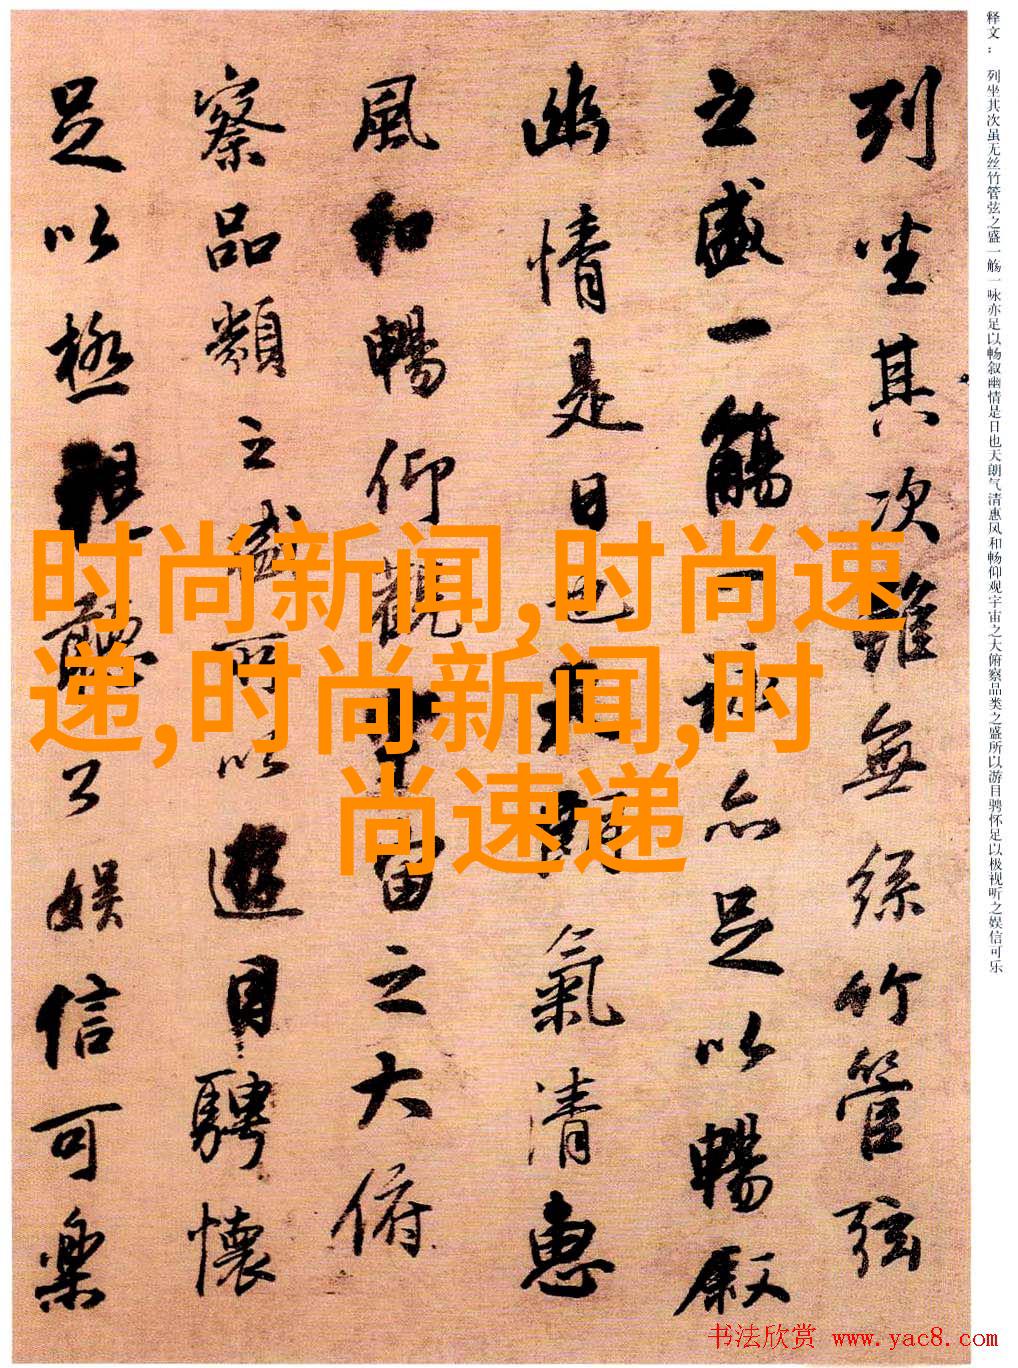 列坐其次雖無絲竹管弦
之盛一觴一詠亦足以暢叙
幽情是日也天朗氣清惠
風和暢仰觀宇宙之大俯
察品類之盛所以遊目騁懷
足以極視聽之娱信可樂
释文： 列坐其次虽无丝竹管弦之盛一觞一咏亦足以畅叙幽情是日也天朗气清惠风和畅仰观宇宙之大俯察品类之盛所以游目骋怀足以极视听之娱信可乐
时尚新闻,时尚速
递,时尚新闻,时
尚速递
书法欣赏 www.yac8.com